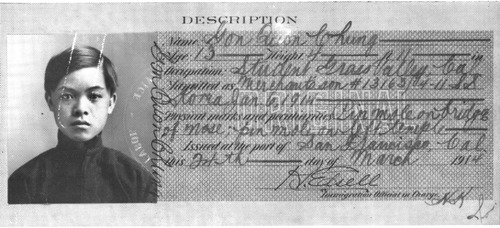 DESCRIPTION
Name Gon Quon Chung
Age 13 Height in
Occupation Student Grass Valley Cal
Admitted as Merchants son # 13163/04-1 S.S.
Korea Jan 6, 1914
Physical marks and peculiarities Pin mole on bridge
of nose - pin mole on left temple
Issued at the port of San Francisco Cal
this day of March 1914
Immigration Official in Charge.